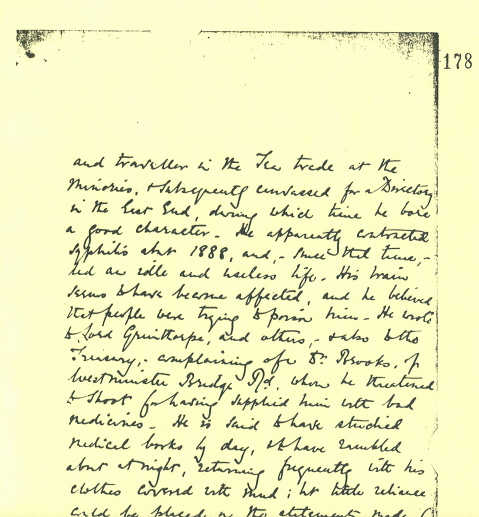 178
and traveller in the Tea trade at the
Minories, & subsequently canvassed for a Directory
in the East End, during which time he bore
a good character – He apparently contracted
syphilis abt 1888, and, – since that time, –
led an idle and useless life – His brain
seems to have become affected, and he believed
that people were trying to poison him – He wrote
to Lord Grimthorpe, and others, – & also to the
Treasury, – complaining of a Dr Brooks, of
Westminster Bridge Rd, whom he threatened
to shoot for having supplied him with bad
medicines – He is said to have studied
medical books by day, & to have rambled
about at night, returning frequently with his
clothes covered with mud; but little reliance
could be placed on the statements made